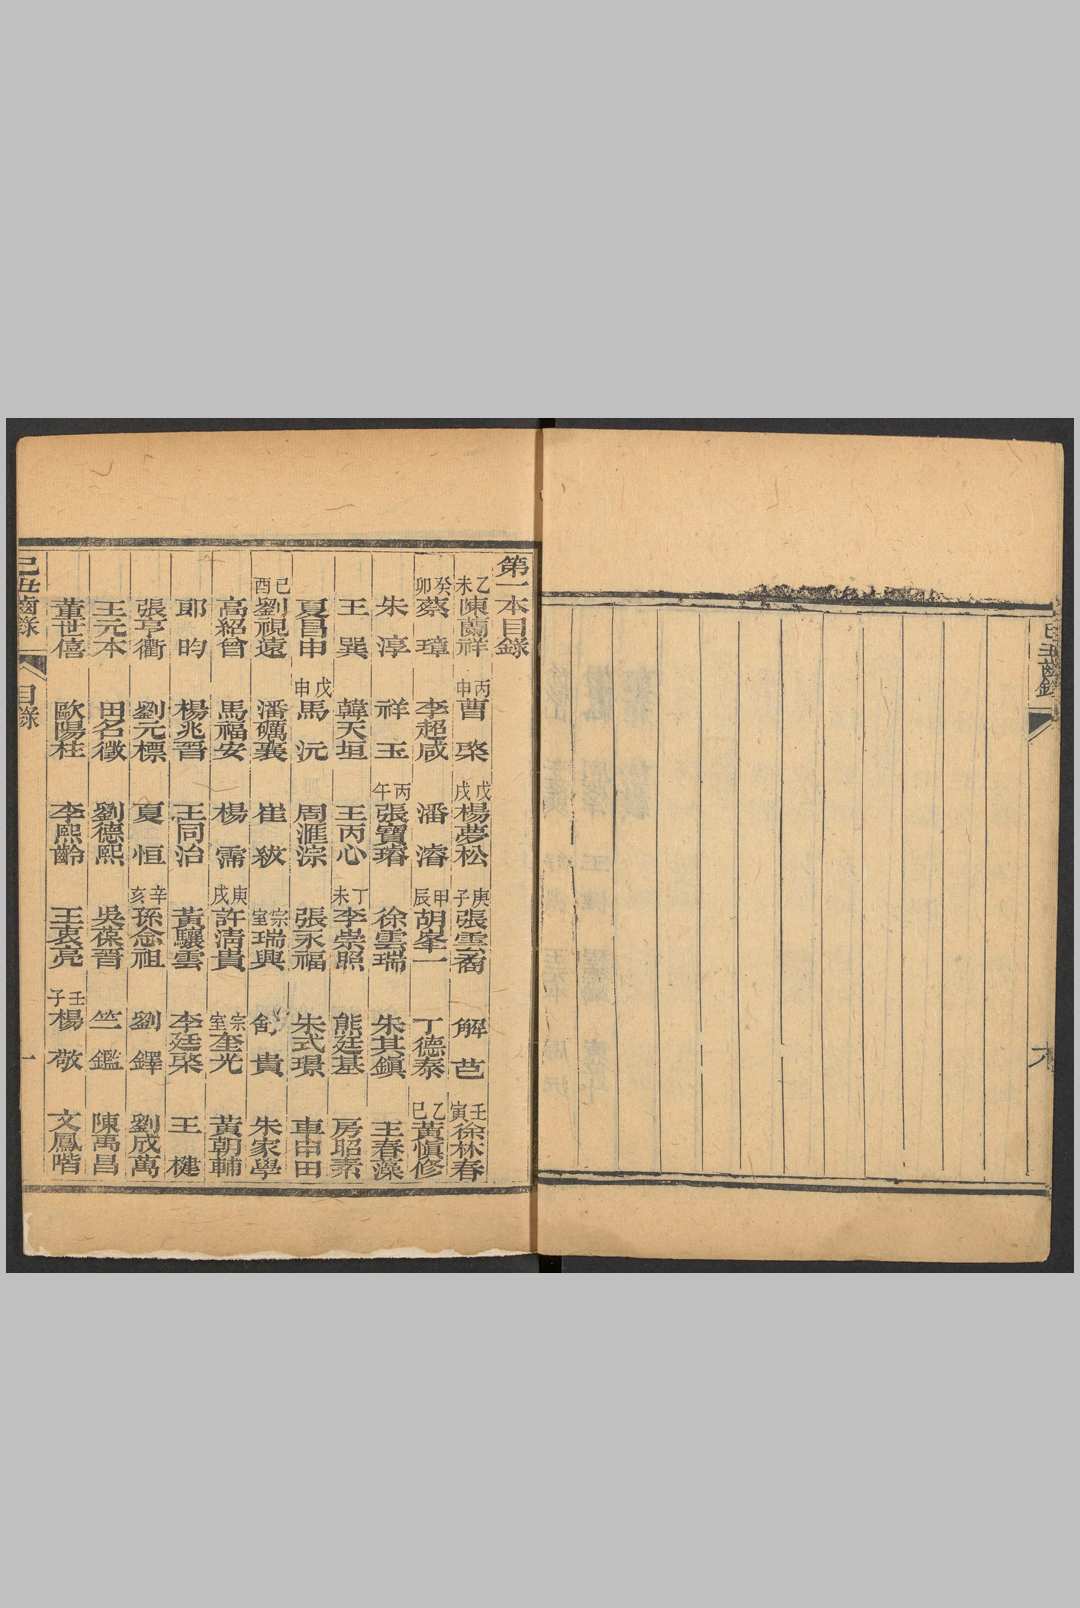 己丑齒錄
六
第一本目錄
乙未陳蘭祥 丙申曹榘 戊戌楊夢松 庚子張雲裔 解芭 壬寅徐林春
癸卯蔡璋 李超咸 潘濬 甲辰胡峯一 丁德泰 乙巳黃愼修
朱淳 祥玉 丙午張寶璿 徐雲瑞 朱其鎭 王春藻
王巽 韓天垣 王丙心 丁未李崇照 熊廷基 房昭素
夏昌申 戊申馬沅 周滙淙 張永福 朱式璟 車申田
己酉劉視遠 潘礪襄 崔紱 宗室瑞興 舒貴 朱家學
高紹曾 馬福安 楊霈 庚戌許淸貴 宗室奎光 黃朝輔
郎昀 楊兆晋 王同治 黃驤雲 李廷棨 王楗
張亨衢 劉元標 夏恒 辛亥孫念祖 劉鐸 劉成萬
王元本 田名徵 劉德熙 吳葆晋 竺鑑 陳禹昌
董世僖 歐陽柱 李熙齡 王衷亮 壬子楊敬 文鳳喈
己丑齒錄 目錄 一